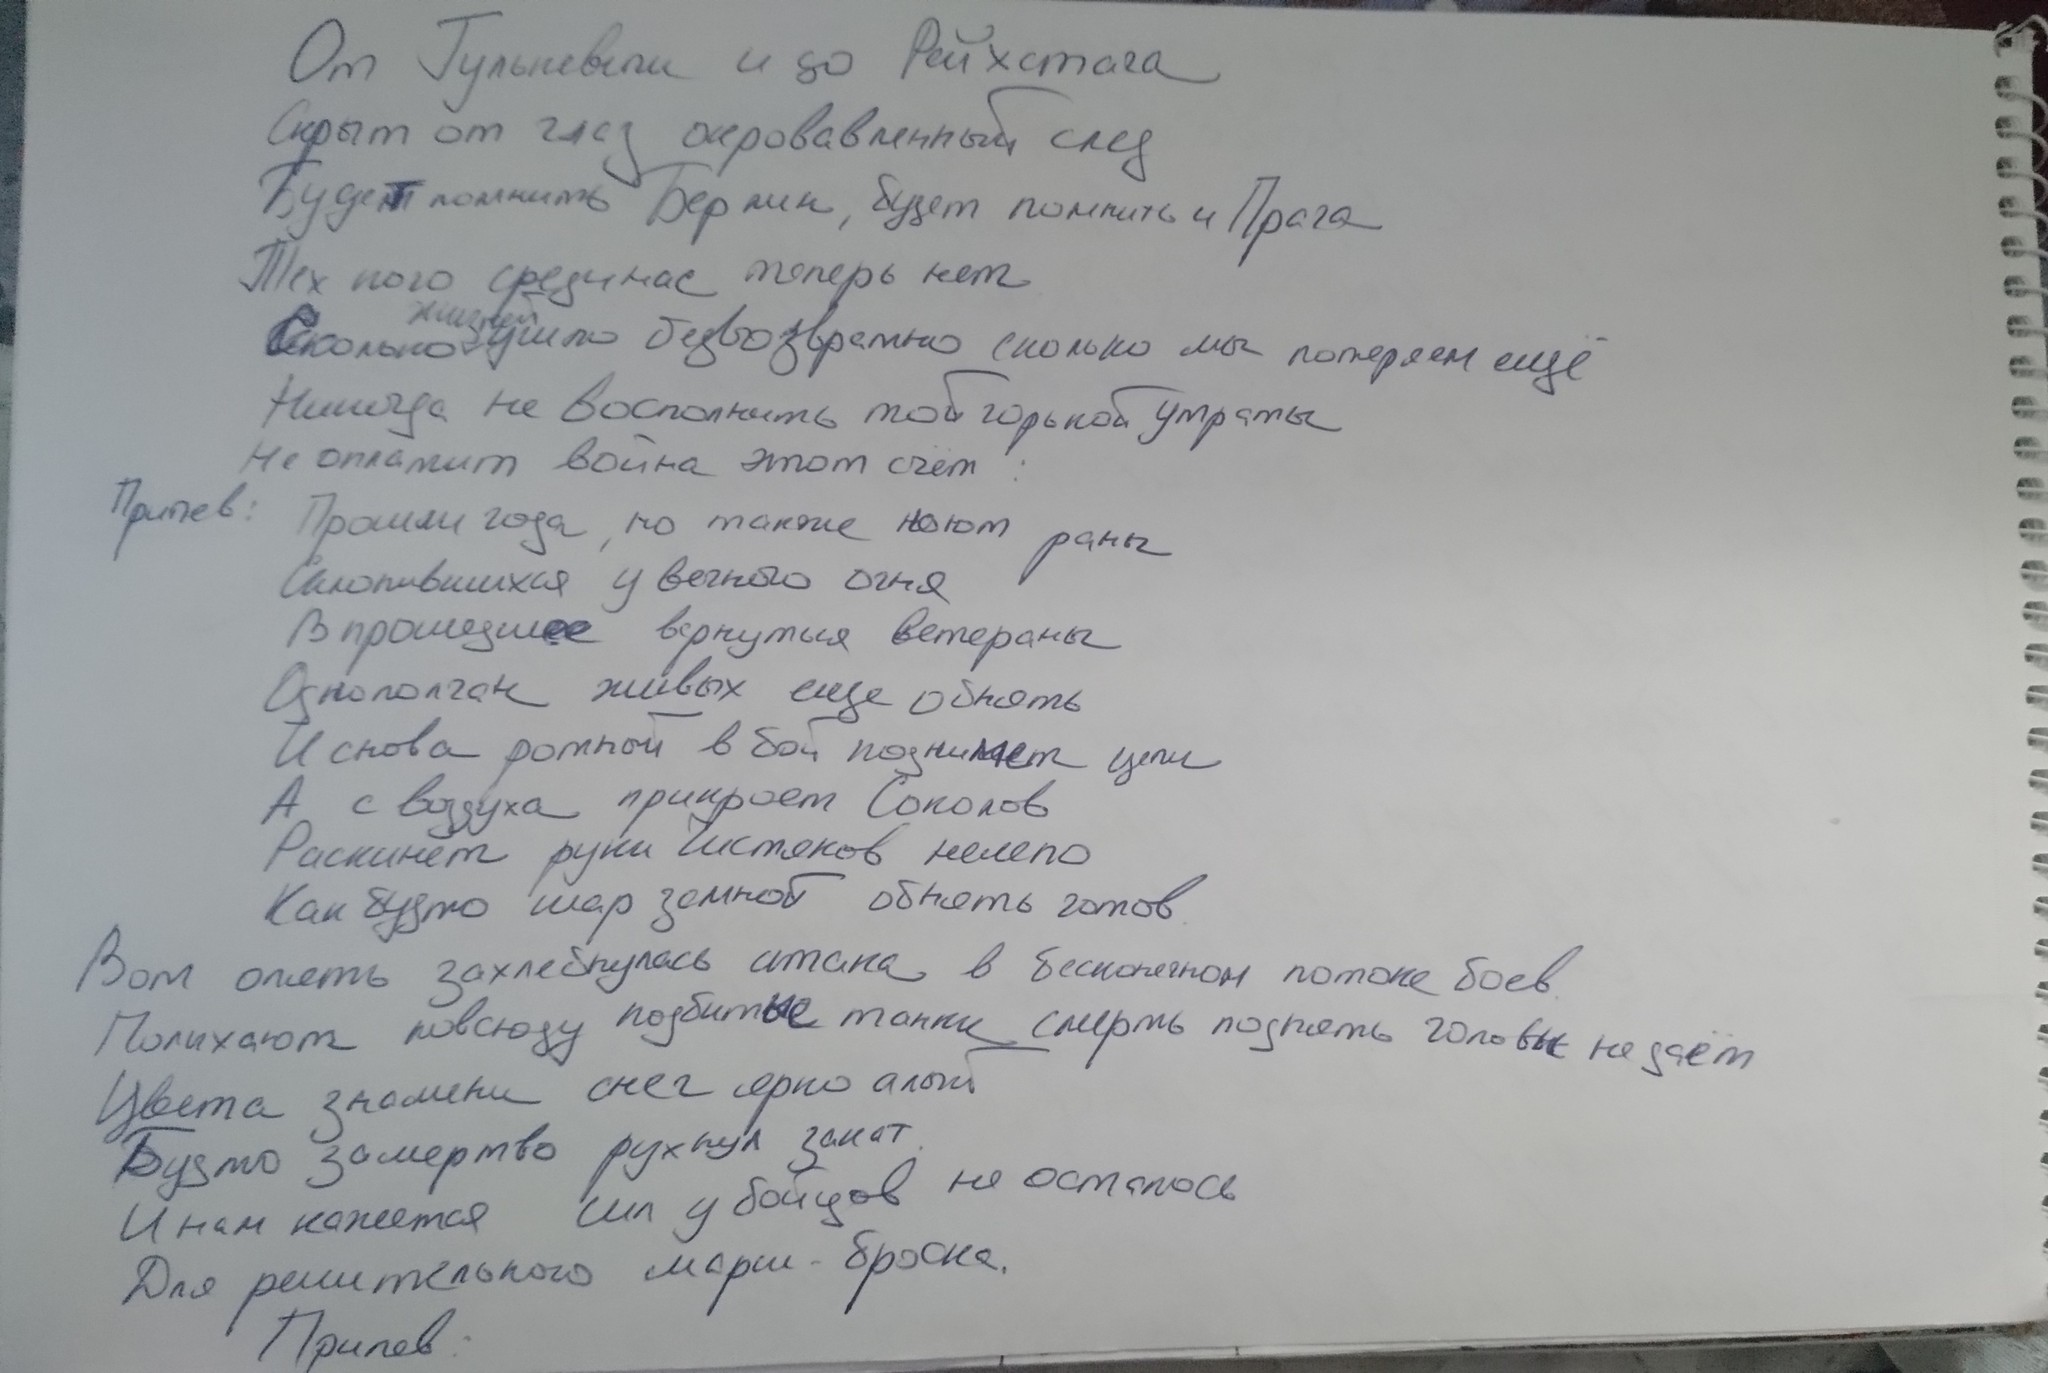 От Гулькевичи и до Рейхстага
Скрыт от глаз окровавленный след
Будет помнить Берлин, будет помнить и Прага
Тех кого среди нас теперь нет
Сколько жизней ушло безвозвратно сколько мы потеряем ещё
Никогда не восполнить той горькой утраты
Не оплатит война этот счёт:
Припев: Прошли года, но также ноют раны
Склонившихся у вечного огня
В прошедшее вернуться ветераны
Однополчан живых еще обнять
И снова ротный в бой поднимет цепи
А с воздуха прикроет Соколов
Раскинет руки Чистяков нелепо
Как будто шар земной обнять готов.
Вот опять захлебнулась атака в бесконечном потоке боев.
Полыхают повсюду подбитые танки смерть поднять головы не даёт
Цвета знамени снег ярко алый
Будто замертво рухнул закат.
И нам кажется сил у бойцов не осталось
Для решительного марш-броска.
Припев: